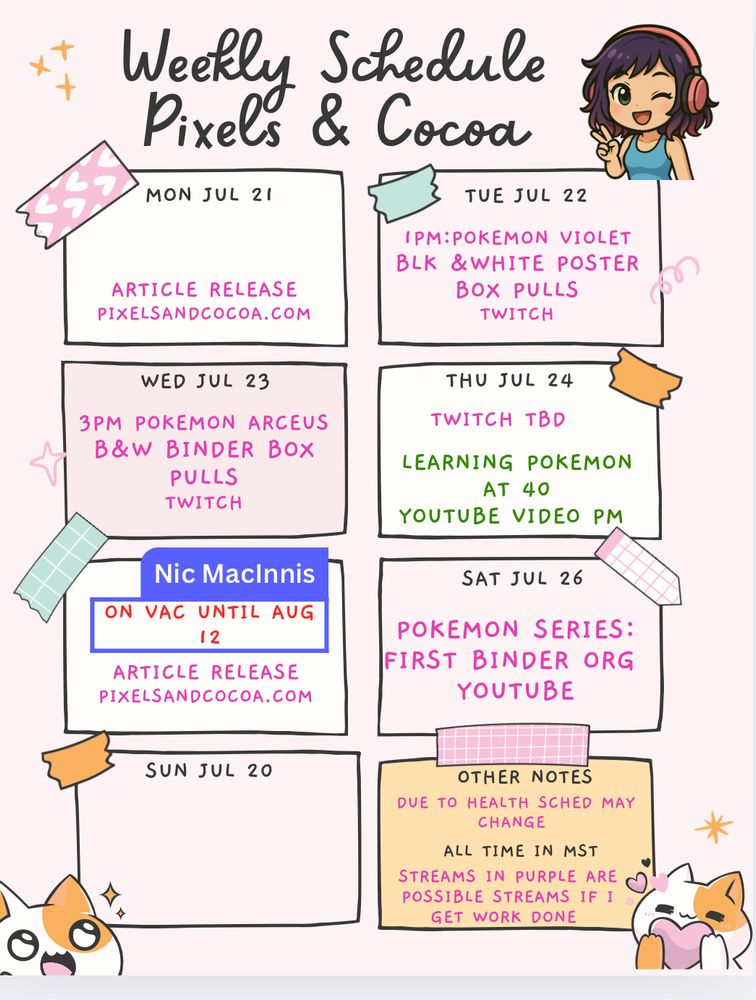 Weekly Schedule
Pixels & Cocoa
MON JUL 21
ARTICLE RELEASE
PIXELSANDCOCOA.COM
TUE JUL 22
1PM:POKEMON VIOLET
BLK &WHITE POSTER
BOX PULLS
TWITCH
WED JUL 23
3PM POKEMON ARCEUS
B&W BINDER BOX
PULLS
TWITCH
THU JUL 24
TWITCH TBD
LEARNING POKEMON
AT 40
YOUTUBE VIDEO PM
Nic MacInnis
ON VAC UNTIL AUG
12
ARTICLE RELEASE
PIXELSANDCOCOA.COM
SAT JUL 26
POKEMON SERIES:
FIRST BINDER ORG
YOUTUBE
SUN JUL 20
OTHER NOTES
DUE TO HEALTH SCHED MAY
CHANGE
ALL TIME IN MST
STREAMS IN PURPLE ARE
POSSIBLE STREAMS IF I
GET WORK DONE